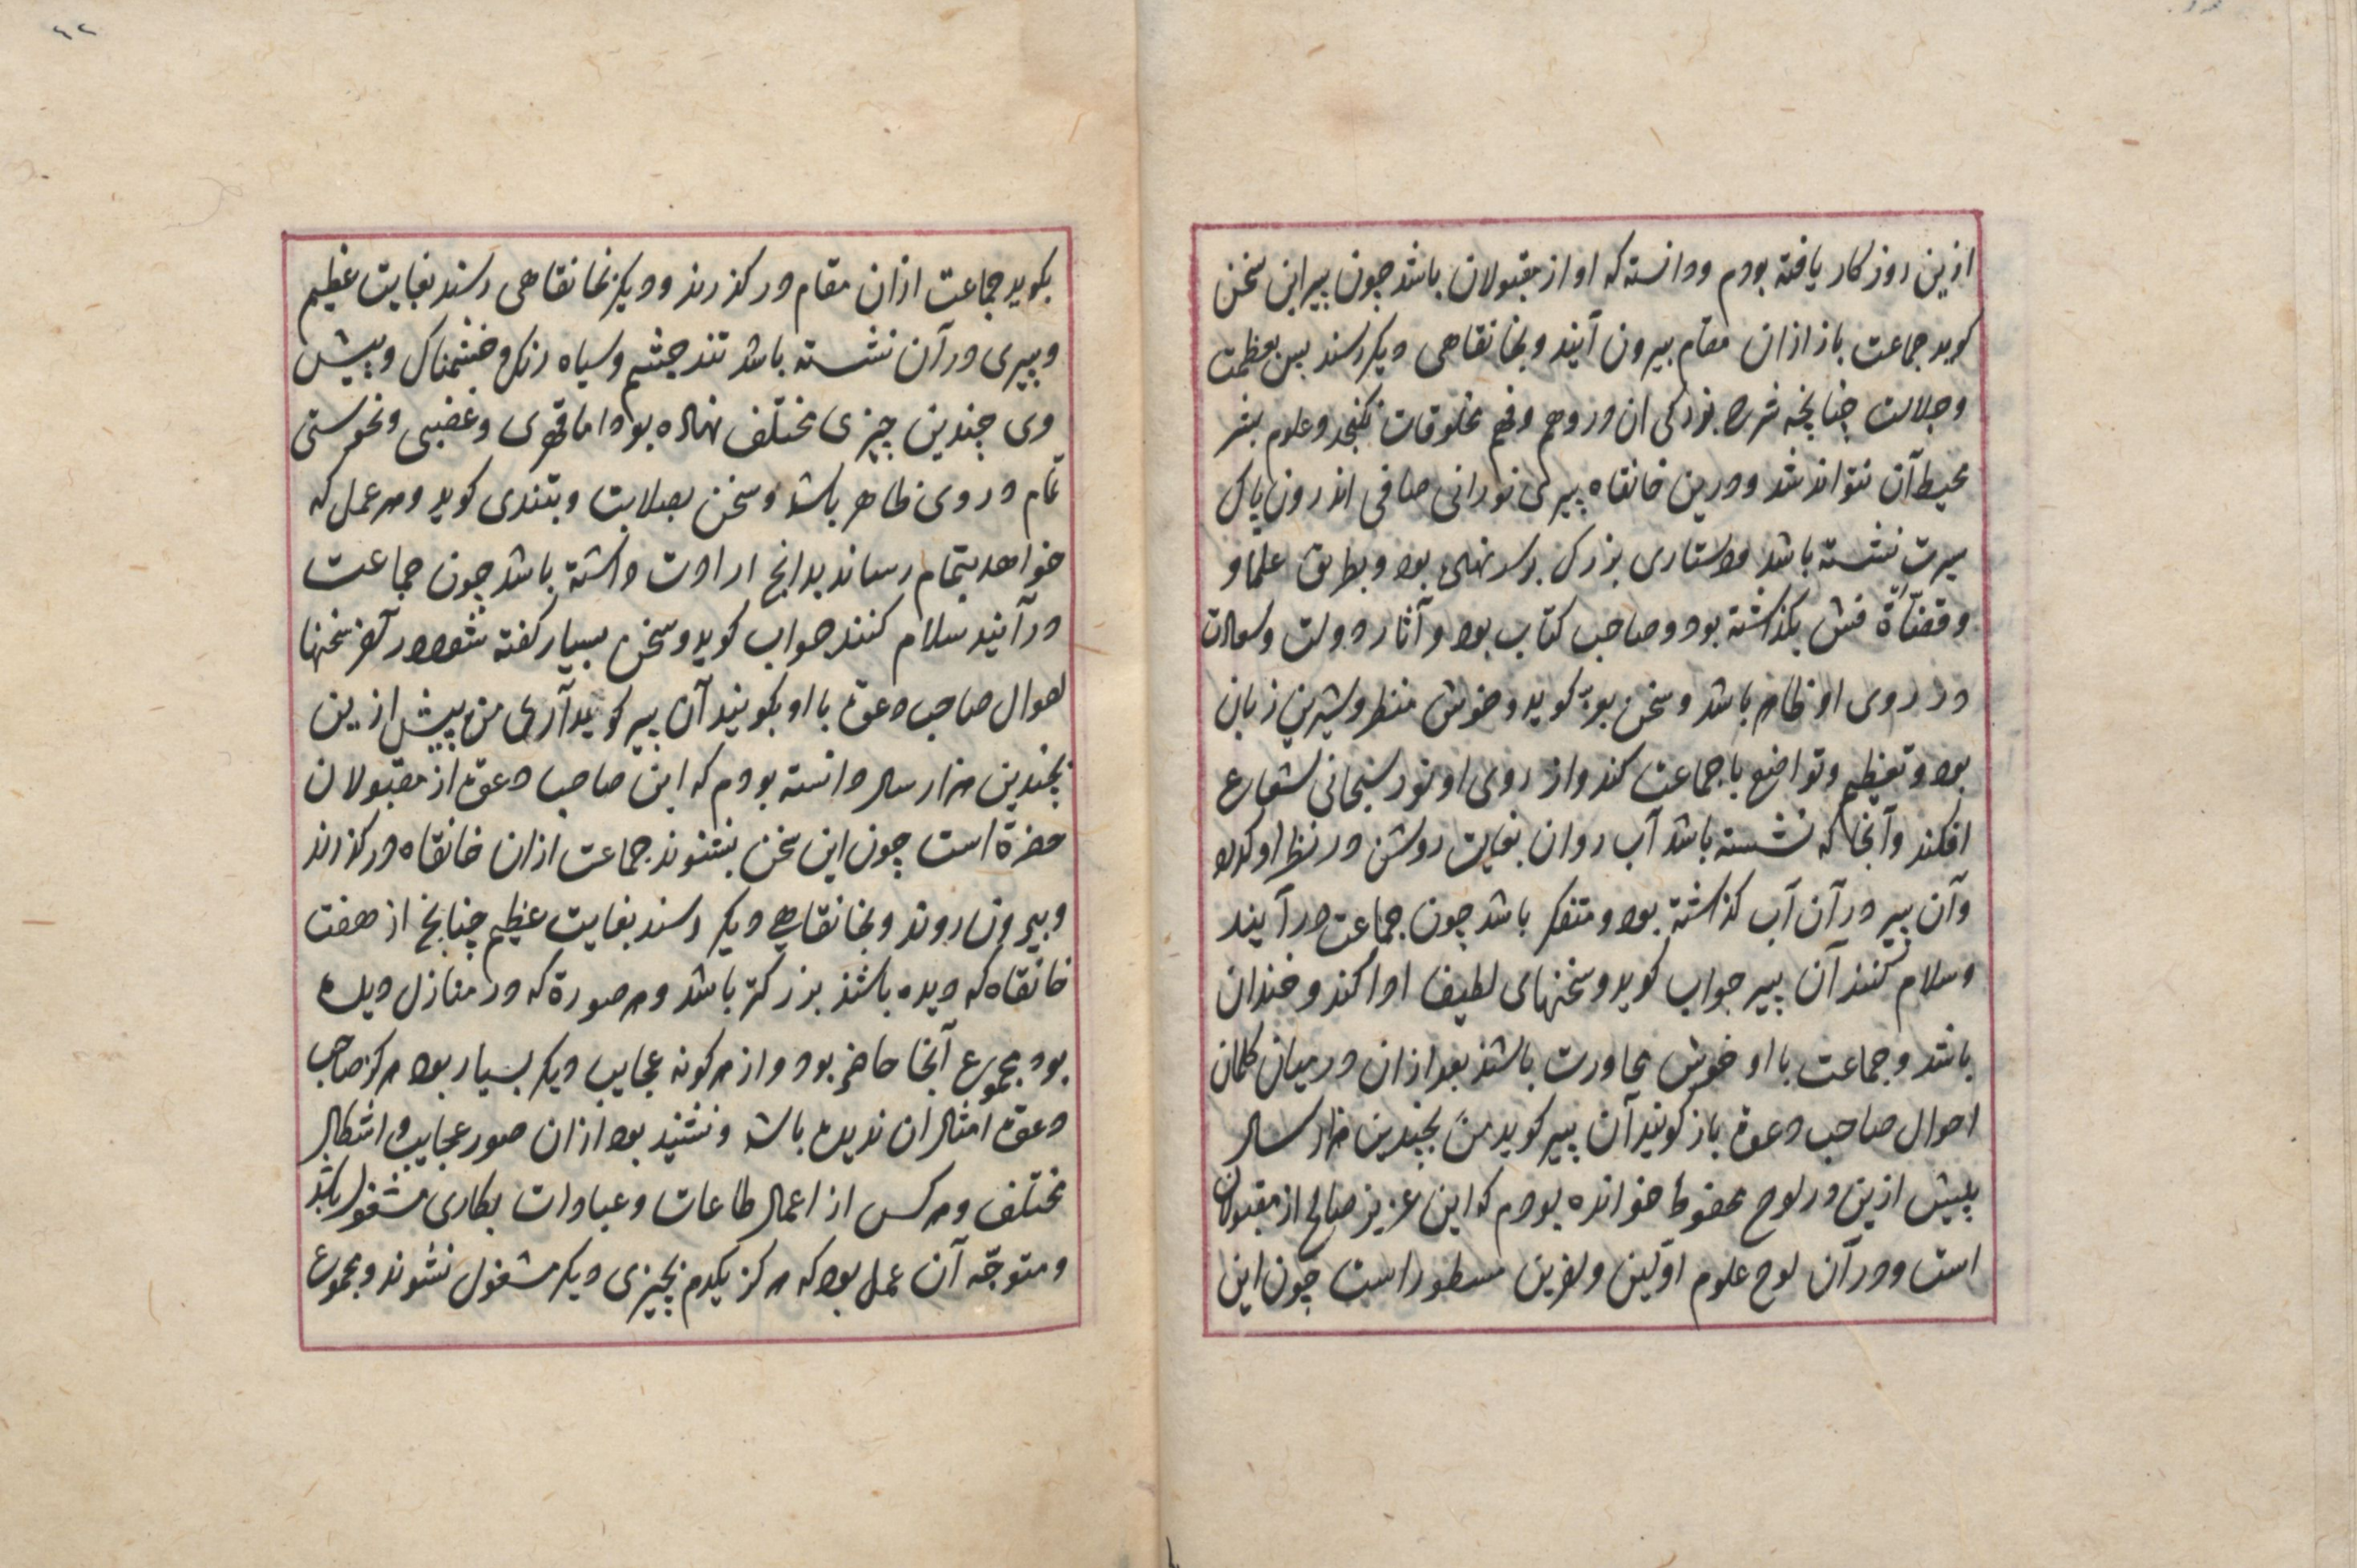 ازین روزکار یافته بودم و دانسته که او از مقبولان باشد چون پیر این سخن
کوید جماعت باز ازان مقام بیرون آیند و بخانقاهی دیکر رسند بس بعظمت
و جلالت چنانچه شرح بزرکی ان در وهم و فهم مخلوقات نکنجد و علوم بشر
محیط آن نتواند شد و درین خانقاه پیری نورانی صافی اندرون پاک
سیرت نشسته باشد و دستاری بزرک بر سر نهاده بود و بطریق علما و
و قضاة فش بکذاشته بود و صاحب کتاب بود و آثار دولت و سعادت
در روی او ظاهر باشد و سخن کوید و خوش منظر و شیرین زبان
بود و تعظیم و تواضع با جماعت کند و از روی او نور سبحانی شعاع
افکند و آنجا که نشسته باشد آب روان بغایت روشن در نظر او کذرد
و آن پیر در آن آب کذاشته بود و متفکر باشد چون جماعت در آیند
و سلام کنند آن پیر جواب کوید و سخنهای لطیف ادا کند و خندان
باشد و جماعت با او خوش محاورت باشند بعد ازان در میان کلمات
احوال صاحب دعوة باز کویند آن پیر کوید من بچندین هزار سال
پیش ازین در لوح محفوظ خوانده بودم که این عزیز صالح از مقبولان
است و در آن لوح علوم اوّلین و اخرین مسطور است چون این
۶۲
بکوید جماعت ازان مقام در کذرند و دیکر بخانقاهی رسند بغایت عظیم
و پیری در آن نشسته باشد تند چشم و سیاه رنک و خشمناک و پیش
وی چندین چیزی مختلف نهاده بود اما قهری و غضبی و نحوستی
تمام در روی ظاهر باشد و سخن بصلابت و بتندی کوید و هر عمل که
خواهد بتمام رساند بدانچ ارادت داشته باشد چون جماعت
در آنید سلام کنند جواب کوید و سخن بسیار کفته شود در آخر سخنها
احوال صاحب دعوة با او بکویند آن پیر کوید آری من پیش ازین
بچندین هزار سال دانسته بودم که این صاحب دعوة از مقبولان
حضرة است چون این سخن بشنوند جماعت ازان خانقاه در کذرند
و بیرون روند و بخانقاهی دیکر رسند بغایت عظیم چنانچ از هفت
خانقاه که دیده باشند بزرکتر باشد و هر صورة که در منازل دیده
بود مجموع آنجا حاضر بود و از هر کونه عجایب دیکر بسیار بود هرکز صاحب
دعوة امثال ان ندیده باشد و نشنید بود ازان صور عجایب و اشکال
مختلف و هر کس از اعمال طاعات و عبادات بکاری مشغول باشد
و متوجّه آن عمل بود که هرکز یکدم بچیزی دیکر مشغول نشوند و مجموع